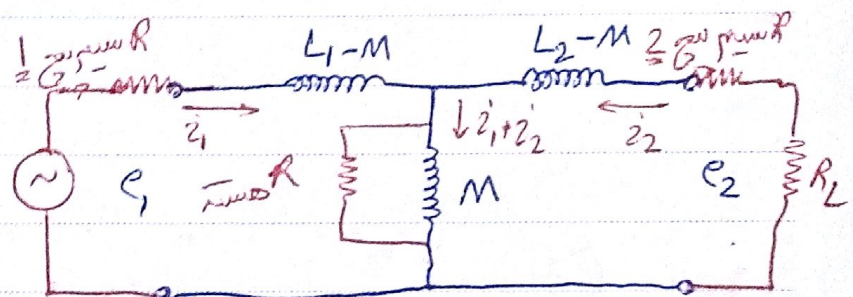 R سیم پیچ 1
L₁-M
L₂-M
R سیم پیچ 2
i₁
↓ i₁+i₂
i₂
~
e₁
R هسته
M
e₂
R_L